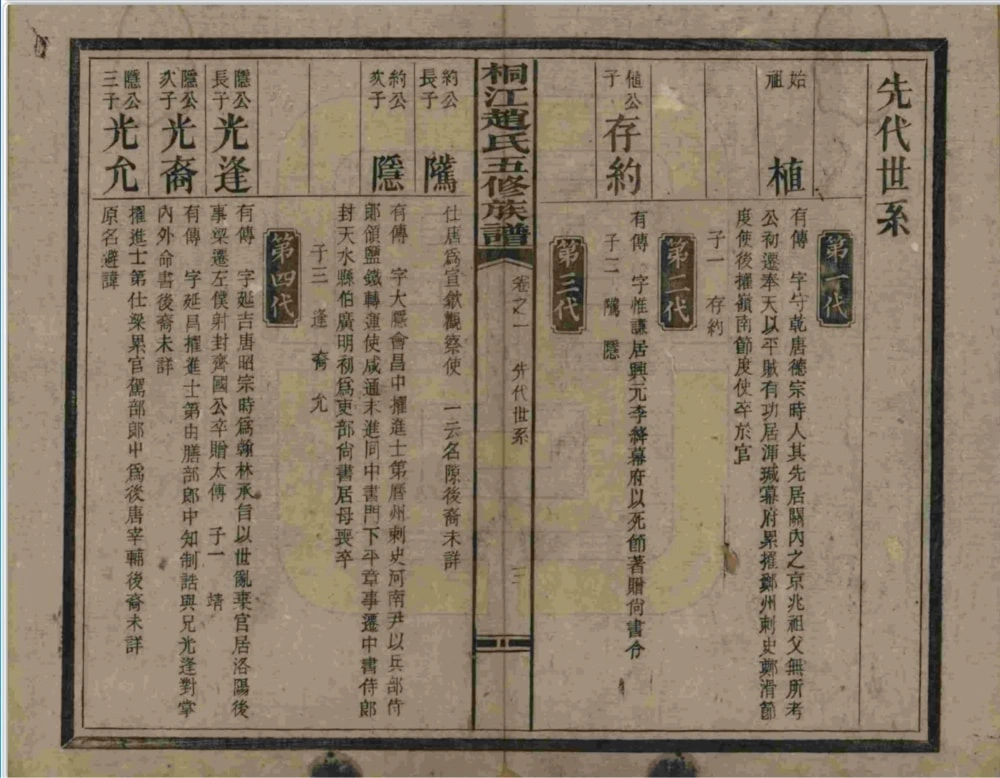 先代世系
第一代
始祖 植
有傳 字守乾唐德宗時人其先居關內之京兆祖父無所考
公初遷奉天以平賊有功居渾瑊幕府累擢鄭州刺史鄭滑節
度使後擢嶺南節度使卒於官
子一 存約
第二代
植公子 存約
有傳 字惟謙居興元李絳幕府以死節著贈尙書令
子二 隲 隱
第三代
桐江趙氏五修族譜
卷之一 先代世系
約公長子 隲
仕唐爲宣歙觀察使 一云名隙後裔未詳
約公次子 隱
有傳 字大隱會昌中擢進士第曆州刺史河南尹以兵部侍
郞領鹽鐵轉運使咸通末進同中書門下平章事遷中書侍郞
封天水縣伯廣明初爲吏部尙書居母喪卒
子三 逢 裔 允
第四代
隱公長子 光逢
有傳 字延吉唐昭宗時爲翰林承旨以世亂棄官居洛陽後
事梁遷左僕射封齊國公卒贈太傅 子一 靖
隱公次子 光裔
有傳 字延昌擢進士第由膳部郞中知制誥與兄光逢對掌
內外命書後裔未詳
隱公三子 光允
擢進士第仕梁累官駕部郞中爲後唐宰輔後裔未詳
原名避諱